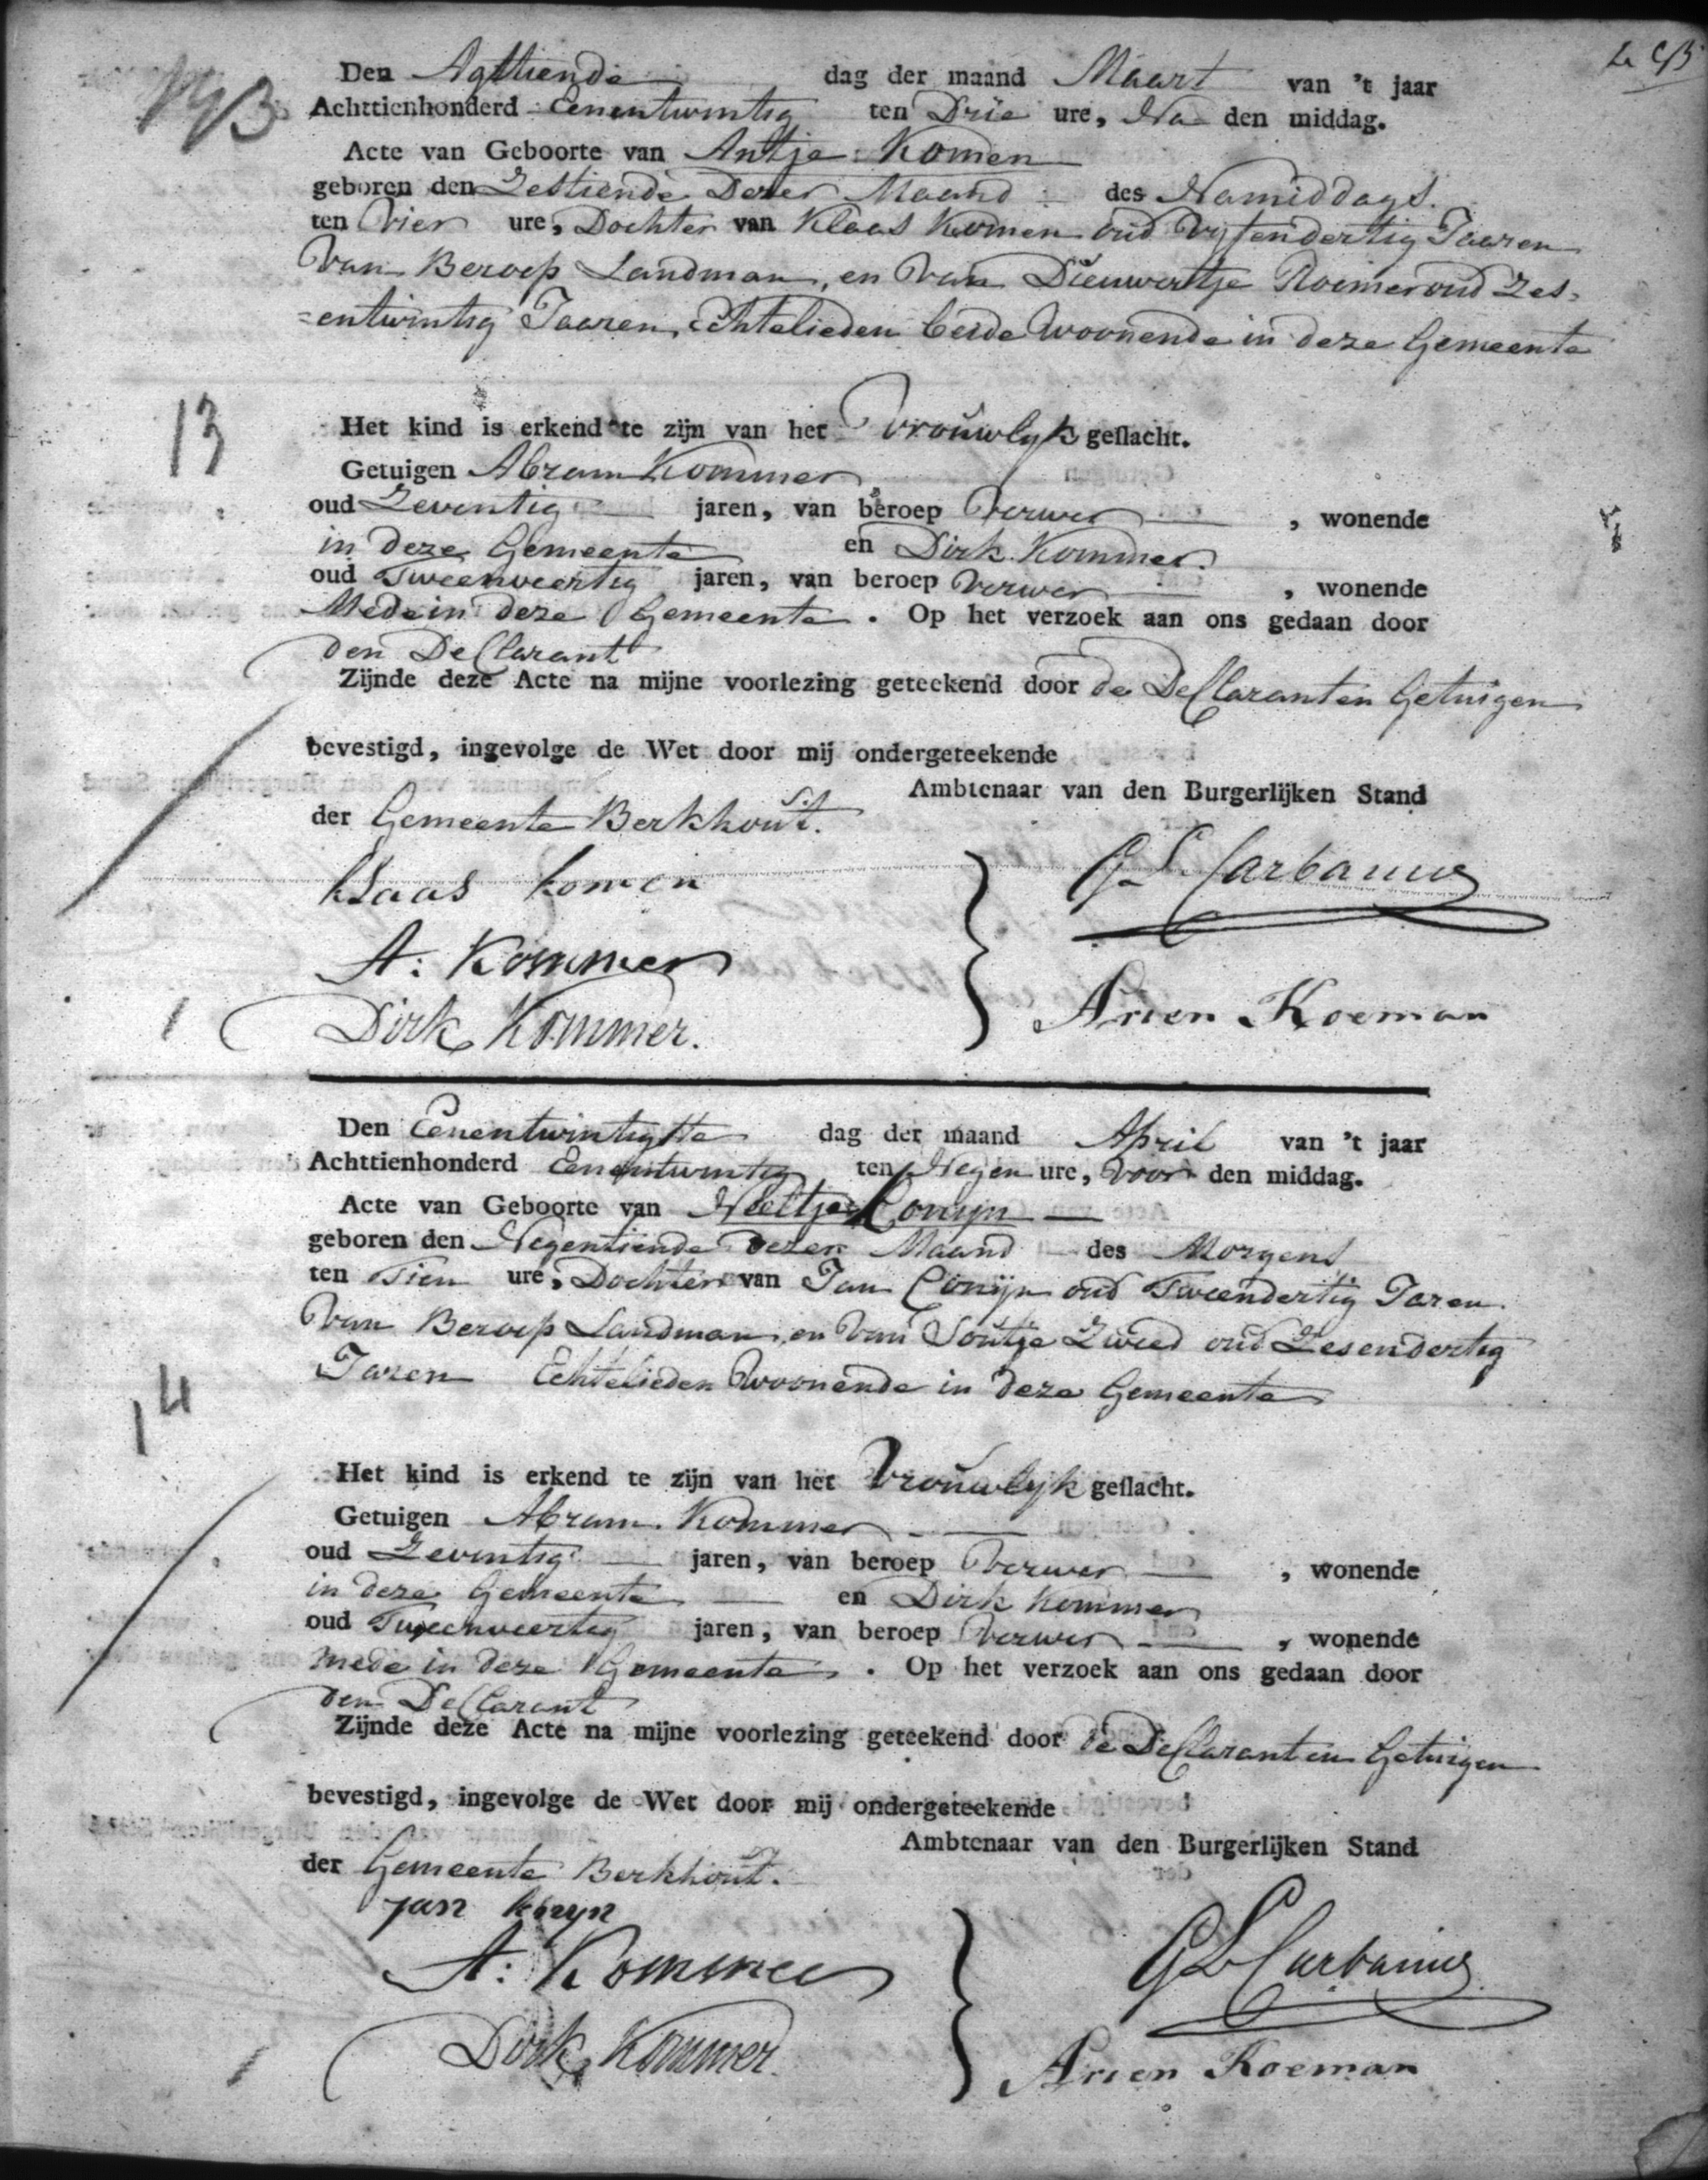 Den Agttiende dag der maand Maart van 't jaar
Achttienhonderd Eenentwintig ten Drie ure, Na den middag.
Acte van Geboorte van Antje Komen
geboren den Zestiende Dezer Maand des Namiddags.
ten Vier ure, Dochter van Klaas Komen oud Vyfendertig Jaaren
Van Beroep Landman, en Van Dieuwertje Roemer oud Zes-
=entwintig Jaaren, Echtelieden beide Woonende in deze Gemeente
13
Het kind is erkend te zijn van het Vrouwlyk geslacht.
Getuigen Abram Kommer
oud Zeventig jaren, van beroep Verwer, wonende
in deze Gemeente en Dirk Kommer.
oud Tweenveertig jaren, van beroep Verwer, wonende
Mede in deze Gemeente. Op het verzoek aan ons gedaan door
den Declarant
Zijnde deze Acte na mijne voorlezing geteekend door de Declarant en Getuigen
bevestigd, ingevolge de Wet door mij ondergeteekende
Ambtenaar van den Burgerlijken Stand
der Gemeente Berkhout.
Klaas Komen
G L Carbasius
A: Kommer
Dirk Kommer.
Arien Koeman
Den Eenentwintigste dag der maand April van 't jaar
Achttienhonderd Eenentwintig ten Negen ure, Voor den middag.
Acte van Geboorte van Neeltje Conijn
geboren den Negentiende dezer Maand des Morgens
ten Tien ure, Dochter van Jan Conijn oud Tweendertig Jaren.
Van Beroep Landman, en Van Soutje Zwied oud Zesendertig
Jaren Echtelieden Woonende in deze Gemeente
14
Het kind is erkend te zijn van het Vrouwlyk geslacht.
Getuigen Abram Kommer
oud Zeventig jaren, van beroep Verwer, wonende
in deze Gemeente en Dirk Kommer
oud Tweenveertig jaren, van beroep Verwer, wonende
mede in deze Gemeente. Op het verzoek aan ons gedaan door
den Declarant
Zijnde deze Acte na mijne voorlezing geteekend door de Declarant en Getuigen
bevestigd, ingevolge de Wet door mij ondergeteekende
Ambtenaar van den Burgerlijken Stand
der Gemeente Berkhout.
Jan konyn
G L Carbasius
A: Kommer
Dirk Kommer.
Arien Koeman